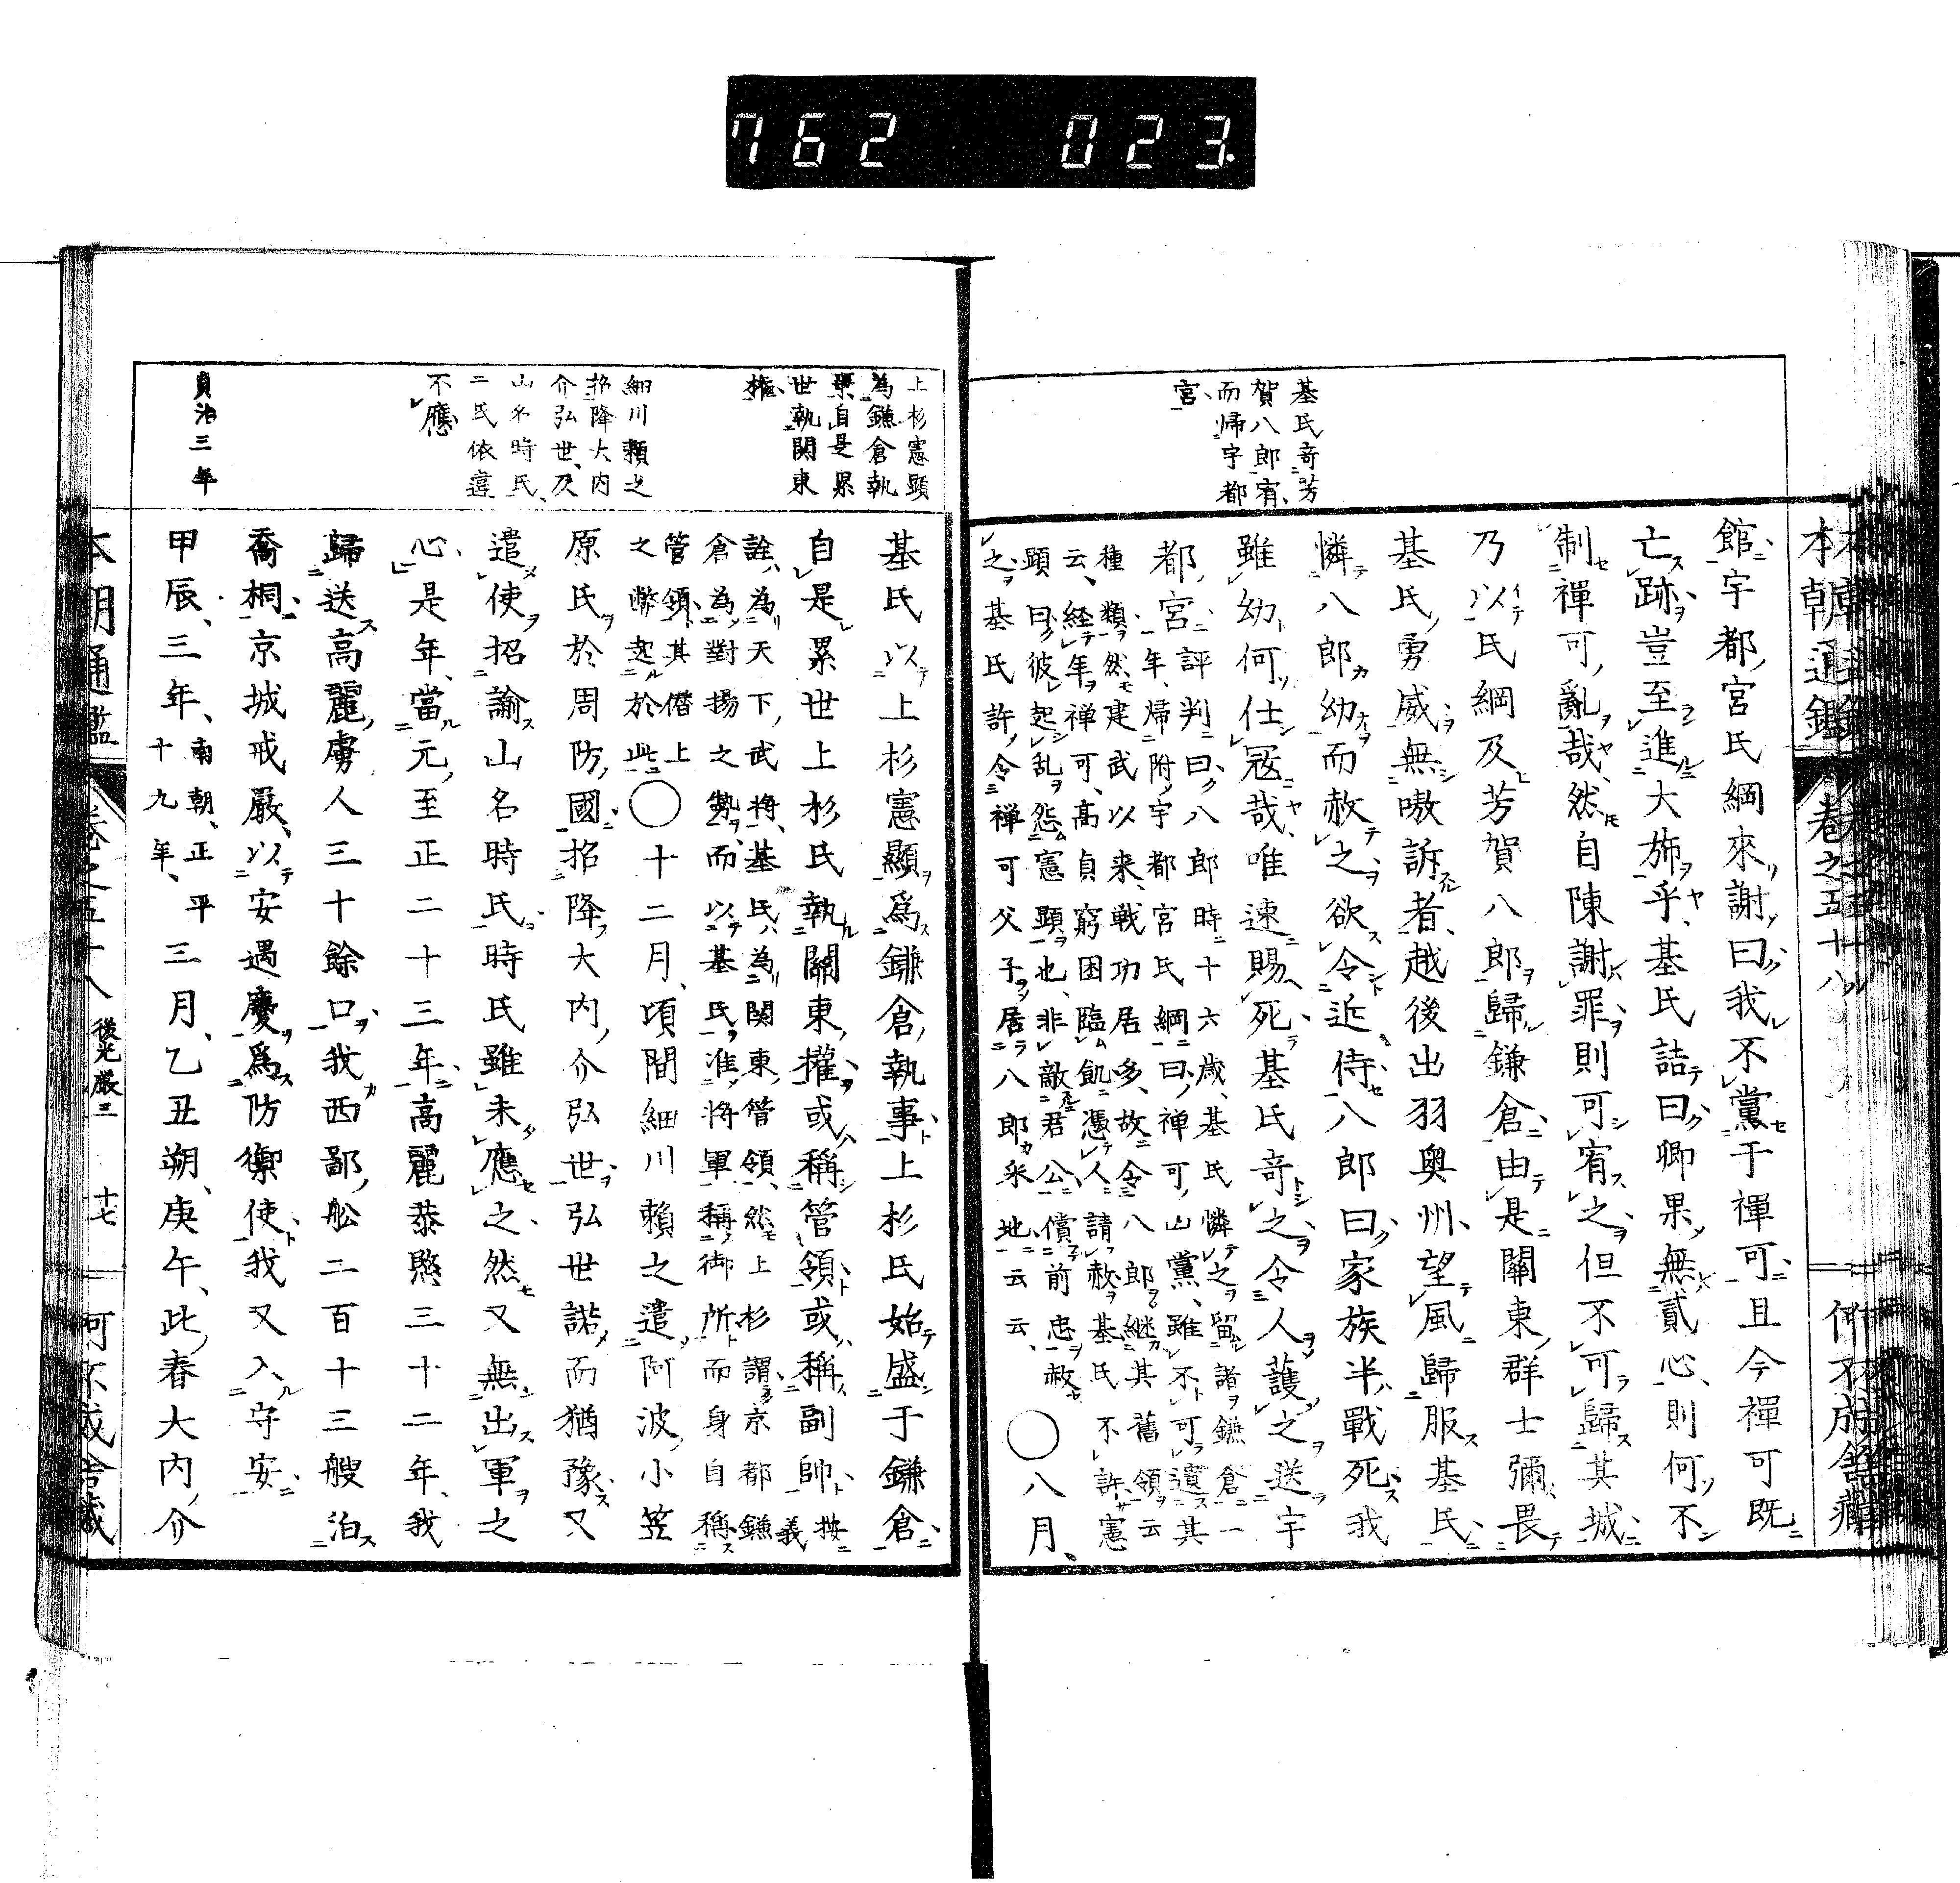 762 023.
本朝通鑑 卷之五十八
基氏奇芳
賀八郎宥
而帰宇都
宮
館宇都宮氏綱來謝曰我不黨于禪可且今禪可既
亡跡豈至進大旆乎基氏詰曰卿果無貳心則何不
制禪可亂哉然自陳謝罪則可宥之但不可歸其城
乃以氏綱及芳賀八郎歸鎌倉由是關東群士彌畏
基氏勇威無嗷訴者越後出羽奥州望風歸服基氏
憐八郎幼而赦之欲令近侍八郎曰家族半戰死我
雖幼何仕冦哉唯速賜死基氏奇之令人護之送宇
都宮評判曰八郎時十六歳基氏憐之留諸鎌倉一
年歸附宇都宮氏綱曰禅可山黨雖不可遺其
種類然建武以来戦功居多故令八郎継其舊領云
云経年禅可高貞窮困臨飢憑人請赦基氏不許憲
顕曰彼起乱怨憲顕也非敵君公償前忠赦
之基氏許令禅可父子居八郎采地云云〇八月
上杉憲顕
為鎌倉執
事自是累
世執関東
権
細川頼之
招降大内
介弘世及
山名時氏
二氏依違
不應
貞治三年
基氏以上杉憲顯爲鎌倉執事上杉氏始盛于鎌倉
自是累世上杉氏執關東權或稱管領或稱副帥按義
詮為天下武将基氏為関東管領然上杉謂京都鎌
倉為對揚之勢而以基氏准将軍稱御所而身自稱
管領其僭上
之弊起於此〇十二月頃間細川頼之遣阿波小笠
原氏於周防國招降大内介弘世弘世諾而猶豫又
遣使招諭山名時氏時氏雖未應之然又無出軍之
心是年當元至正二十三年高麗恭愍三十二年我
歸送高麗虜人三十餘口我西鄙舩二百十三艘泊
喬桐京城戒嚴以安遇慶爲防禦使我又入守安
甲辰三年南朝正平十九年三月乙丑朔庚午此春大内介
本朝通鑑 卷之五十八 後光嚴三 十七